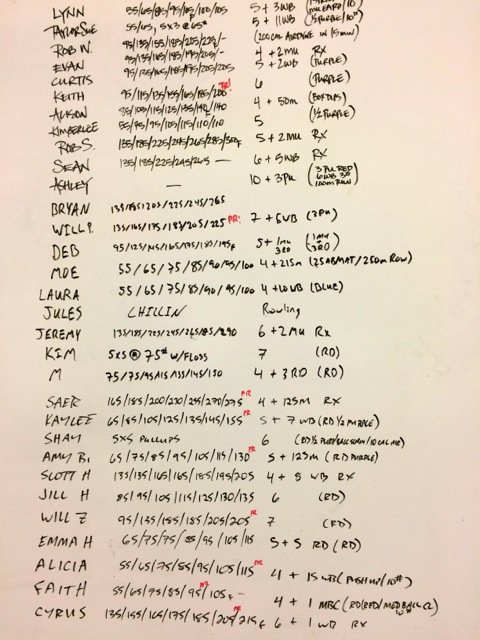 LYNN 55/65/85/95/105/100/105 5 + 3WB
TAYLOR SUE 55/65, 5x3 @ 65# 5 + 11WB (½ PURPLE/10#)
ROB W. 95/135/155/185/205/225/- (200 CAL AIRDYNE W/ 15 MIN)
EVAN 95/135/165/185/195/205/- 4 + 2MU RX
CURTIS 95/125/165/185/195/205/205 5 + 2WB (PURPLE)
KEITH 95/115/135/155/165/185/200 PR! 6 (PURPLE)
ALISON 85/105/115/125/135/140/140 4 + 50m (BOX DIPS)
KIMBERLEE 55/85/95/105/115/110/110 5 (½ PURPLE)
ROB S. 135/185/225/245/265/285/300F 5 + 2MU RX
SEAN 135/185/225/245/265 — 6 + 5WB RX
ASHLEY — 10 + 3PU (3 PU RED 6 WB 30 100m ROW)
BRYAN 135/185/205/225/245/265
WILL P. 135/165/175/185/205/225 PR! 7 + 6WB (2PU)
DEB 95/125/145/165/175/185/195F 5 + 1MU 3RD (1MU 3RD)
MOE 55/65/75/85/90/95/100 4 + 215m (25 ABMAT/250m ROW)
LAURA 55/65/75/85/90/95/100 4 + 10WB (BLUE)
JULES CHILLIN Rowling
JEREMY 135/185/225/245/265/285/290 6 + 2MU RX
KIM 5x5 @ 75# W/FLOSS 7 (RD)
M 75/75/95/115/135/145/150 4 + 3RD (RD)
SAER 165/185/200/220/255/270/275 PR 4 + 125M RX
KAYLEE 65/85/105/125/135/145/155 PR 5 + 7 WB (RD ½ PURPLE)
SHAY 5x5 PULLUPS 6
AMY B. 65/75/85/95/105/115/130 PR 5 + 125m (RD PURPLE)
SCOTT H 135/135/165/165/185/195/205 4 + 8 WB RX
JILL H 85/95/105/115/125/130/135 6 (RD)
WILL Z 95/135/155/185/205/205 PR 7 (RD)
EMMA H 65/75/75/85/95/105/115 5 + 5 RD (RD)
ALICIA 55/65/75/85/95/105/115 PR 4 + 15 WB (PUSH UP/10#)
FAITH 55/65/75/85/95/105F - PR 4 + 1 MBC (RD(RED)/MEDBALL CL 10#)
CYRUS 135/155/165/175/185/205/215F PR 6 + 1 WB RX